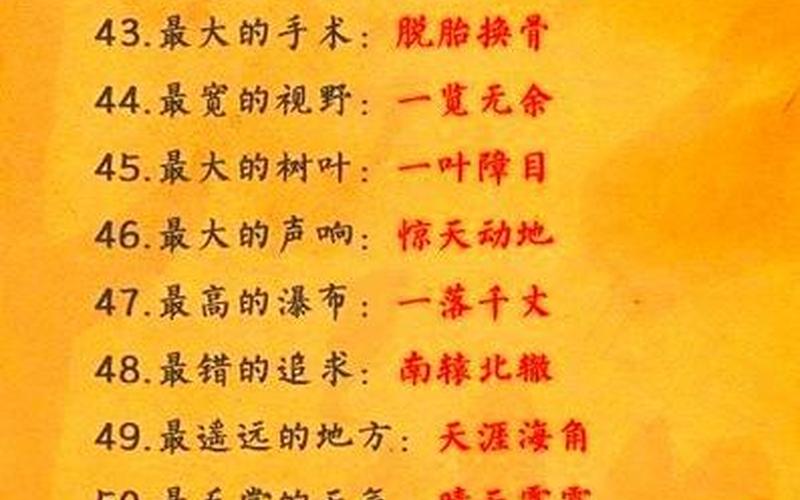 43.最大的手术：脱胎换骨
44.最宽的视野：一览无余
45.最大的树叶：一叶障目
46.最大的声响：惊天动地
47.最高的瀑布：一落千丈
48.最错的追求：南辕北辙
49.最遥远的地方：天涯海角